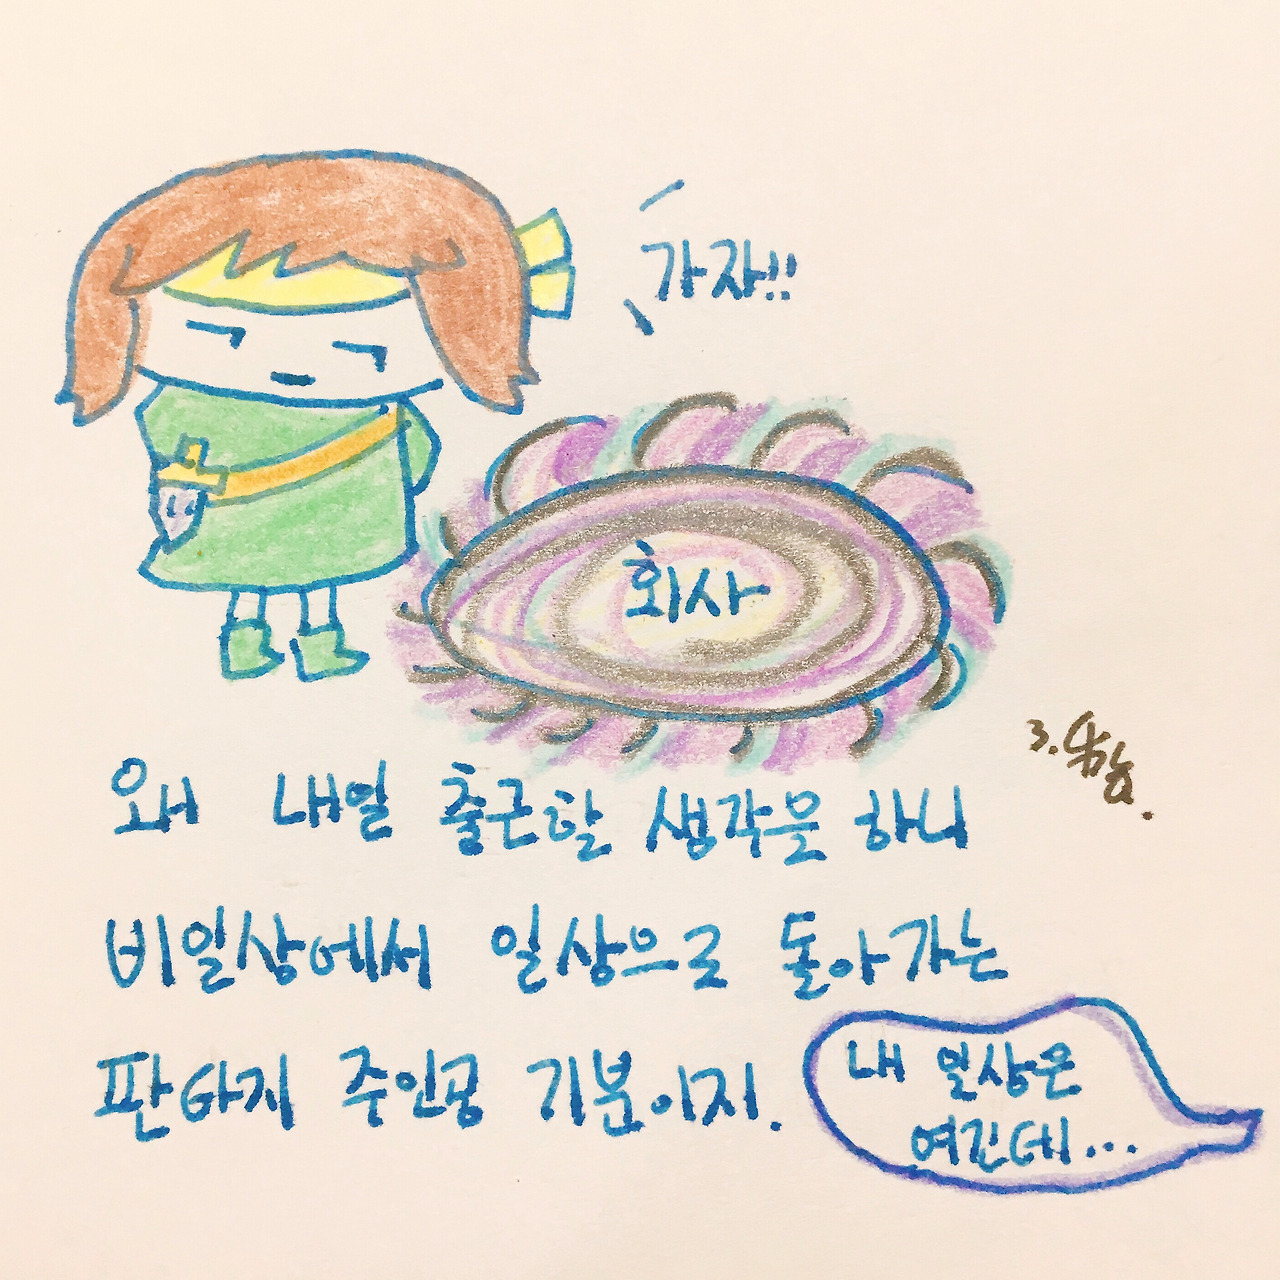 가자!!
회사
왜 내일 출근할 생각을 하니
비일상에서 일상으로 돌아가는
판타지 주인공 기분이지.
내 일상은
여긴데...